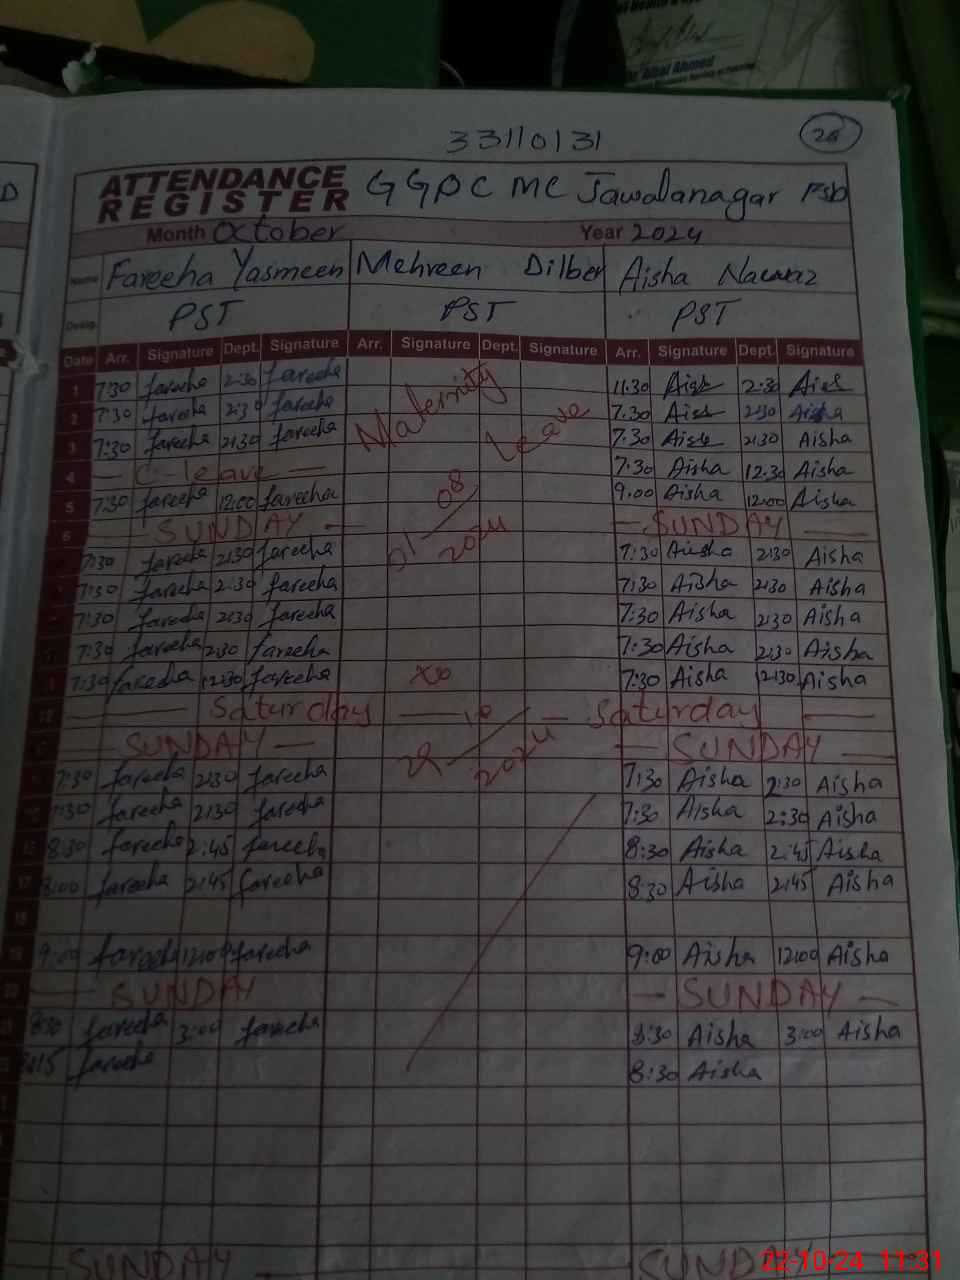 Aisal Ahmed
33110131
28
ATTENDANCE REGISTER GGPC MC Jawalanagar Fsb
Month October Year 2024
Name Fareeha Yasmeen Mehreen Dilber Aisha Nawaz
Desig. PST PST PST
Date Arr. Signature Dept. Signature Arr. Signature Dept. Signature Arr. Signature Dept. Signature
1 7:30 fareeha 2:30 fareeha Maternity 11:30 Aish 2:30 Aish
2 7:30 fareeha 2:30 fareeha Leave 7:30 Aish 2:30 Aisha
3 7:30 fareeha 2:30 fareeha 7:30 Aish 2:30 Aisha
4 C-leave 7:30 Aisha 12:30 Aisha
5 7:30 fareeha 12:00 fareeha 08 9:00 Aisha 12:00 Aisha
6 SUNDAY 2024 SUNDAY
7:30 fareeha 2:30 fareeha 7:30 Aisha 2:30 Aisha
7:30 fareeha 2:30 fareeha 7:30 Aisha 2:30 Aisha
7:30 fareeha 2:30 fareeha 7:30 Aisha 2:30 Aisha
7:30 fareeha 2:30 fareeha 7:30 Aisha 2:30 Aisha
7:30 fareeha 12:30 fareeha to 7:30 Aisha 12:30 Aisha
12 Saturday 10 Saturday
SUNDAY 29 2024 SUNDAY
7:30 fareeha 2:30 fareeha 7:30 Aisha 2:30 Aisha
7:30 fareeha 2:30 fareeha 7:30 Aisha 2:30 Aisha
8:30 fareeha 2:45 fareeha 8:30 Aisha 2:45 Aisha
17 8:00 fareeha 2:45 fareeha 8:30 Aisha 2:45 Aisha
18
19 9:00 fareeha 12:00 fareeha 9:00 Aisha 12:00 Aisha
SUNDAY SUNDAY
8:30 fareeha 3:00 fareeha 8:30 Aisha 3:00 Aisha
8:15 fareeha 8:30 Aisha
SUNDAY SUNDAY
22-10-24 11:31